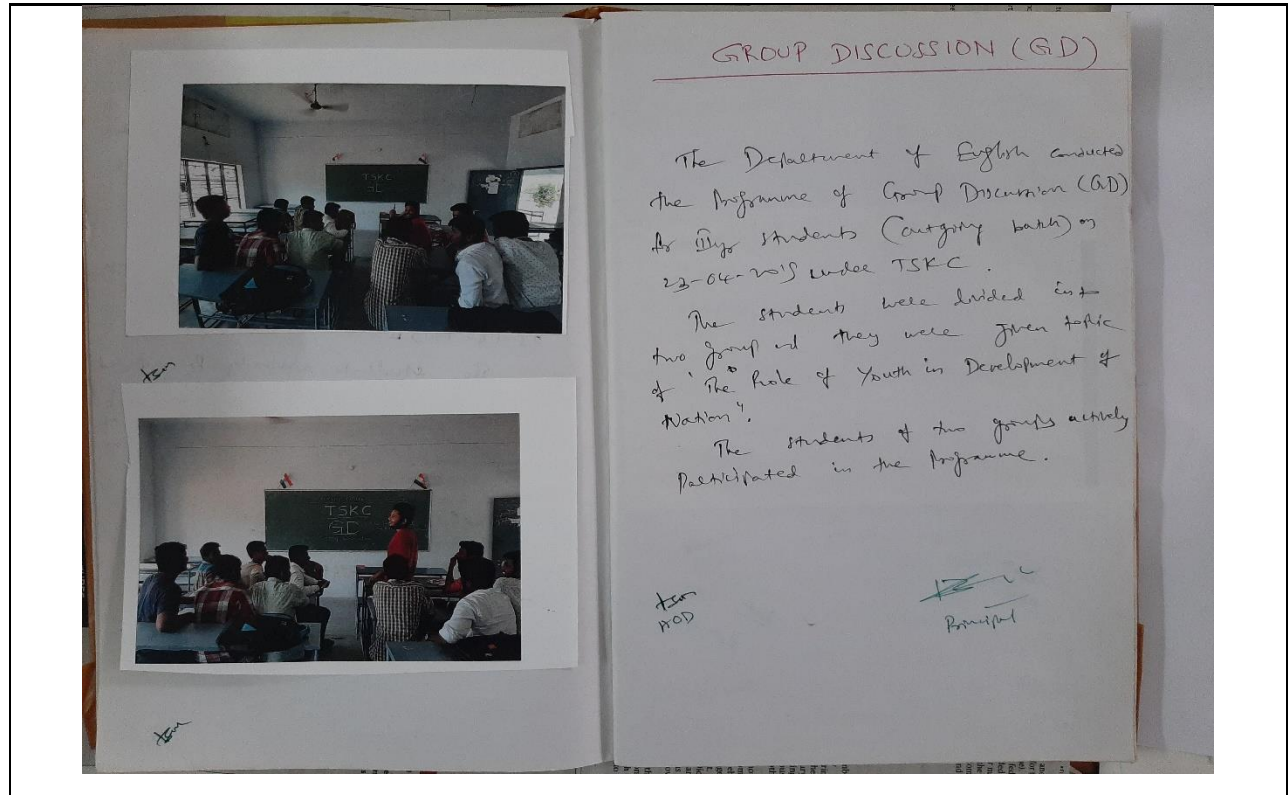 TSKC
TSKC
GD
GROUP DISCUSSION (GD)
The Department of English conducted
the Programme of Group Discussion (GD)
for III yr students (outgoing batch) on
under TSKC.
The students were divided into
two group and they were given topic
of "The Role of Youth in Development of
Nation".
The students of two groups actively
Participated in the Programme.
HOD
Principal